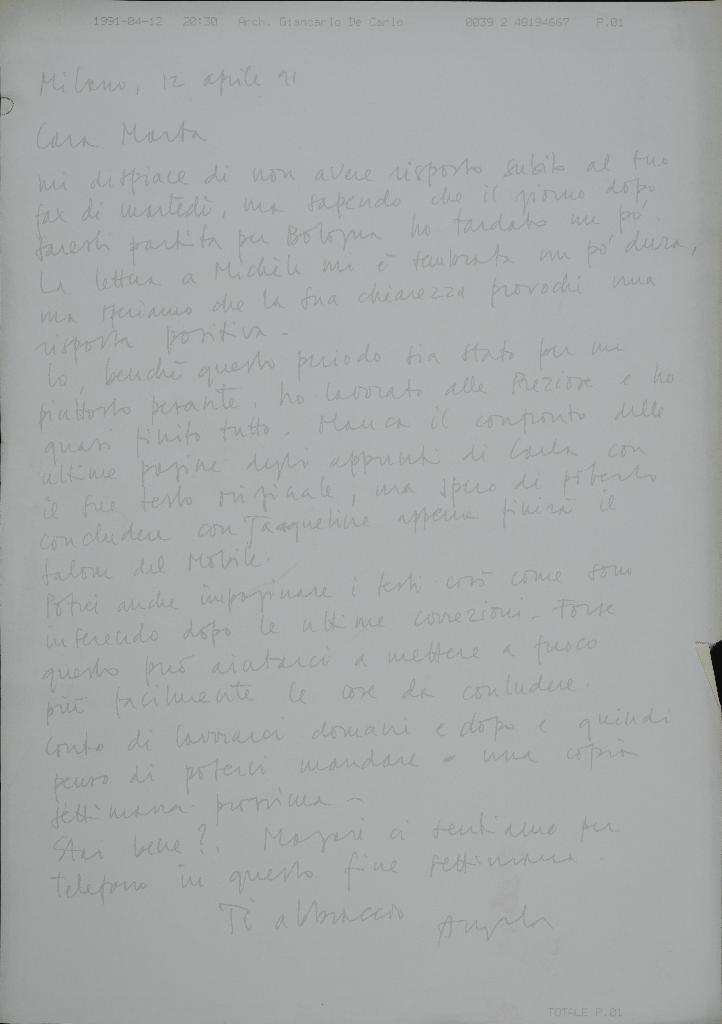 1991-04-12 20:30 Arch. Giancarlo De Carlo 0039 2 48194667 P.01
Milano, 12 aprile 91
Cara Marta
mi dispiace di non avere risposto subito al tuo
fax di martedì, ma sapendo che il giorno dopo
saresti partita per Bologna ho tardato un pó.
La lettera a Michèle mi è sembrata un pó dura,
ma speriamo che la sua chiarezza provochi una
risposta positiva -
Io, benchè questo periodo sia stato per me
piuttosto pesante, ho lavorato alle Preziose e ho
quasi finito tutto. Manca il confronto delle
ultime pagine degli appunti di Carla con
il suo testo originale, ma spero di poterlo
concludere con Jacqueline appena finirà il
Salone del Mobile.
Potrei anche impaginare i testi così come sono
inserendo dopo le ultime correzioni. Forse
questo può aiutarci a mettere a fuoco
più facilmente le cose da concludere.
Conto di lavorarci domani e dopo e quindi
penso di poterti mandare una copia
settimana prossima -
Stai bene? Magari ci sentiamo per
telefono in questo fine settimana.
Ti abbraccio Angela
TOTALE P.01